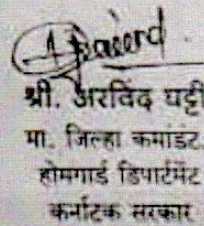 श्री. अरविंद घट्टी
मा. जिल्हा कमांडंट,
होमगार्ड डिपार्टमेंट
कर्नाटक सरकार